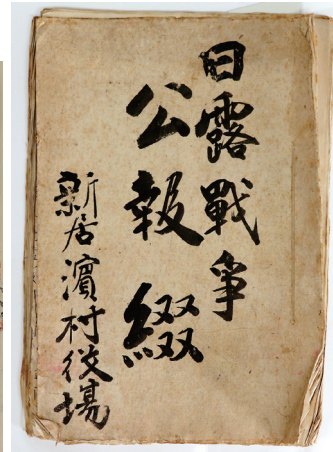 日露戰爭
公報綴
新居濱村役場